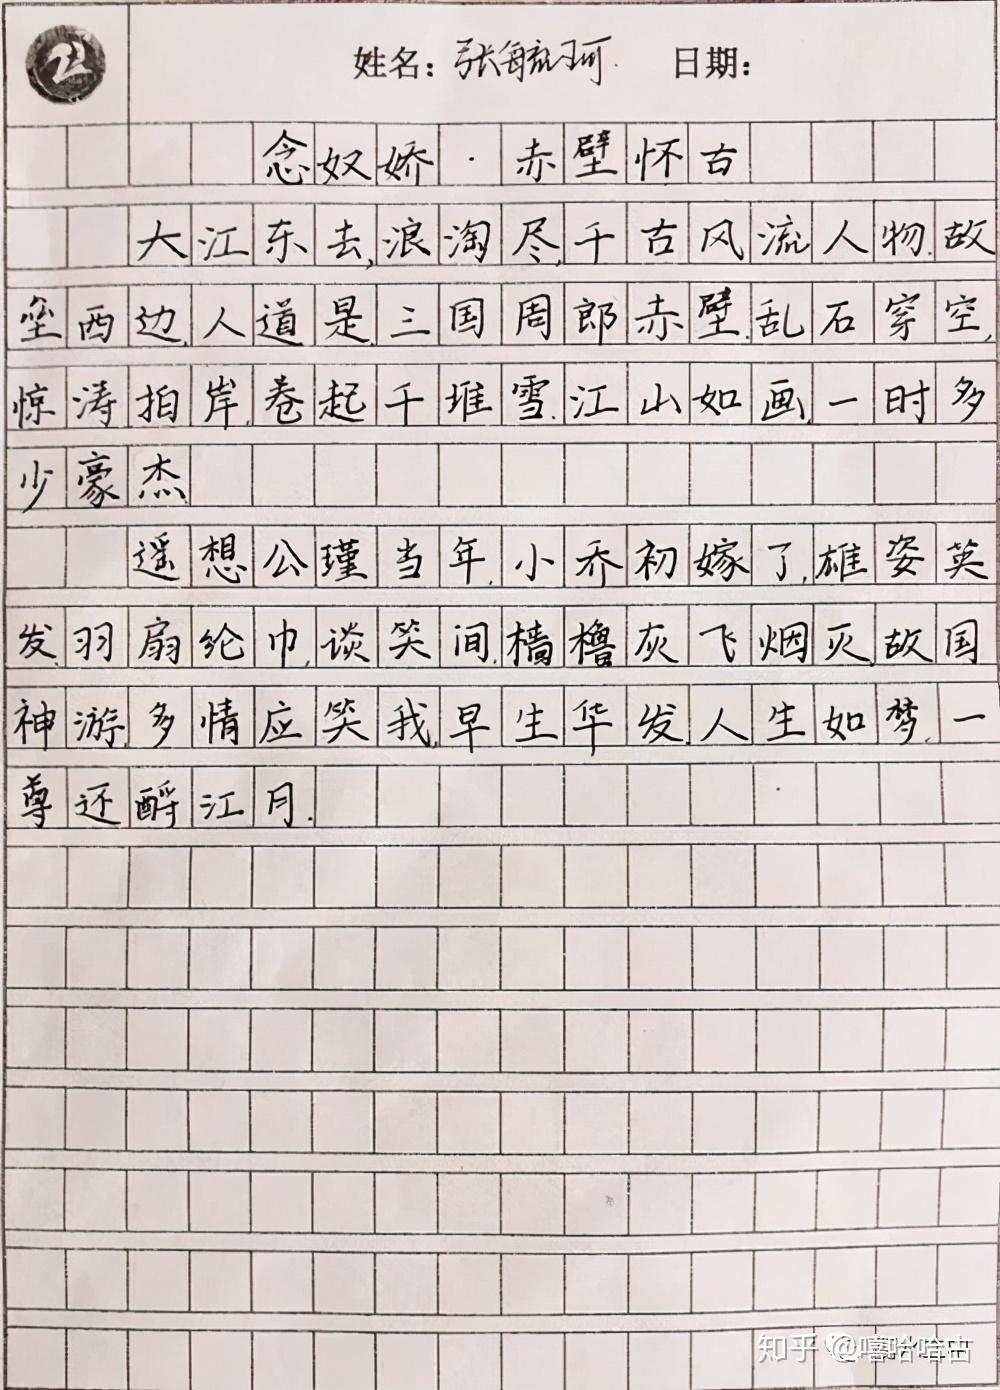 姓名：张毓珂. 日期：
念奴娇·赤壁怀古
大江东去,浪淘尽,千古风流人物.故
垒西边,人道是,三国周郎赤壁.乱石穿空,
惊涛拍岸,卷起千堆雪.江山如画,一时多
少豪杰.
遥想公瑾当年,小乔初嫁了,雄姿英
发.羽扇纶巾,谈笑间,樯橹灰飞烟灭.故国
神游,多情应笑我,早生华发.人生如梦,一
尊还酹江月.
知乎 @嘻哈哈由